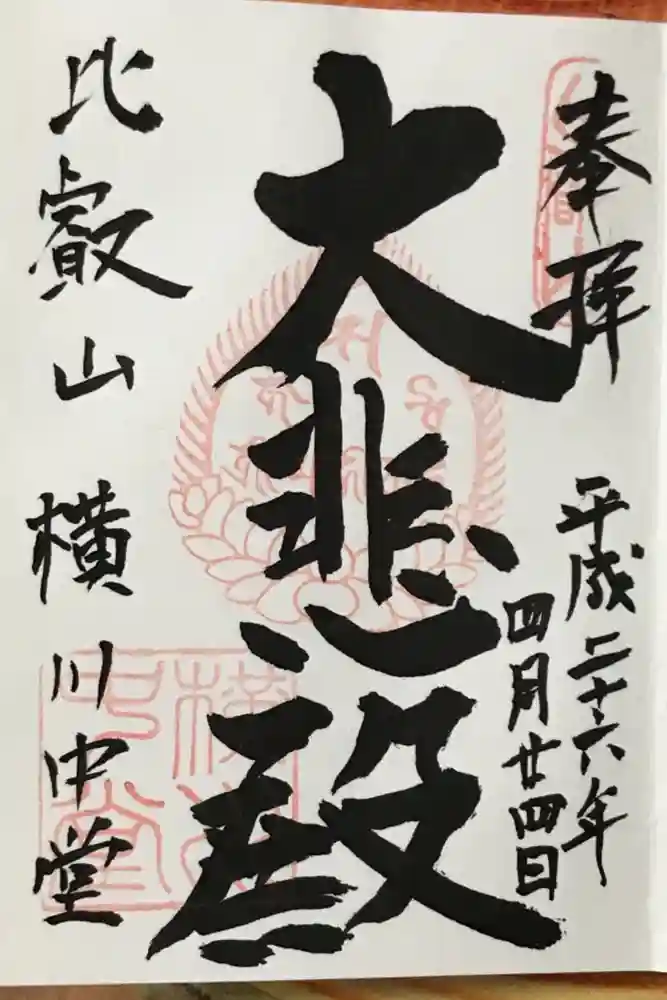 奉拝
平成二十六年
四月廿四日
大悲殿
比叡山 横川中堂
横川中堂